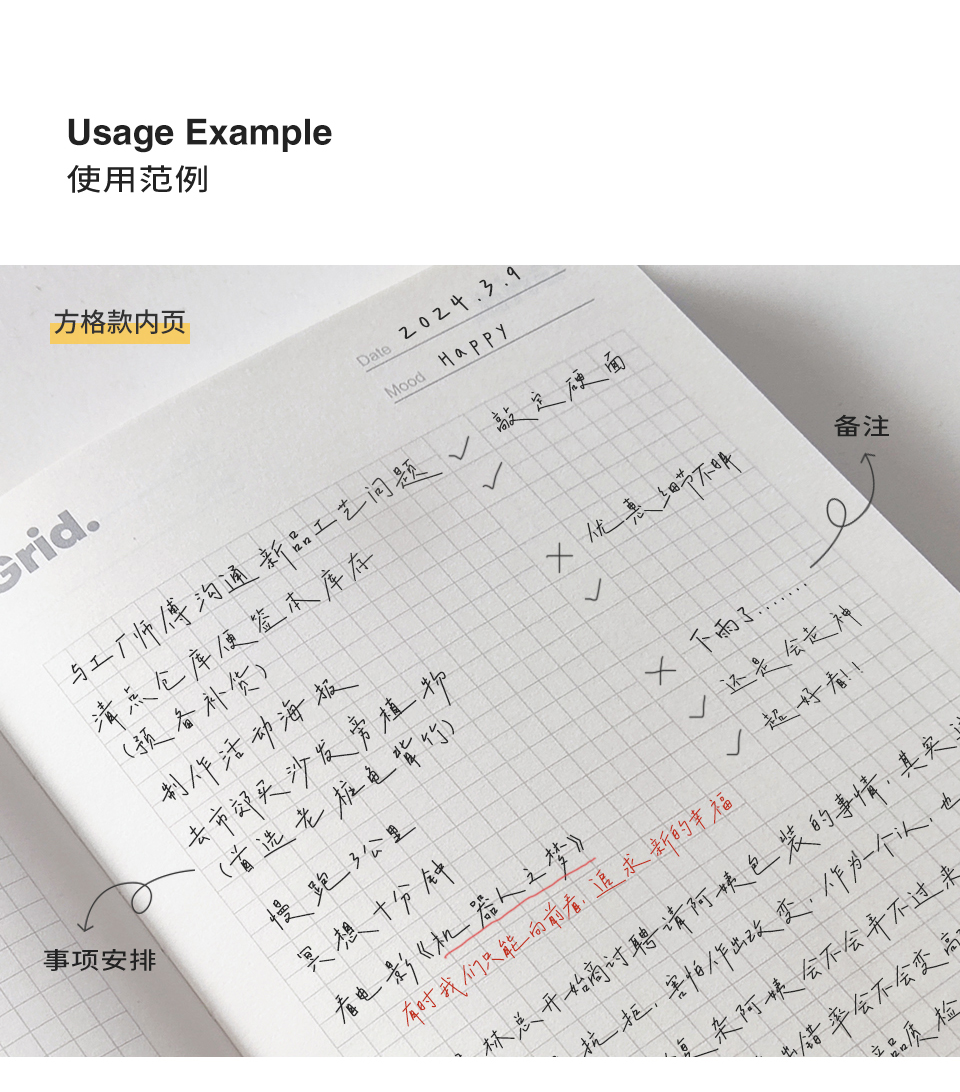 Usage Example
使用范例
方格款内页
Date 2024.3.9
Mood Happy
Grid.
备注
与工厂师傅沟通新品工艺问题 ✓ 敲定硬面
清点仓库便签本库存 ✓
(预备补货)
制作活动海报 × 优惠细节不明
去市郊买沙发旁植物 ✓
(首选老桩龟背竹)
慢跑3公里 × 下雨了……
冥想十分钟 ✓ 还是会走神
看电影《机器人之梦》 ✓ 超好看!!
有时我们只能向前看,追求新的幸福
事项安排
林总开始商讨聘请阿姨包装的事情,其实
抗拒,害怕作出改变,作为一个i人,也
杂阿姨会不会弄不过来
出错率会不会变高
产品质检